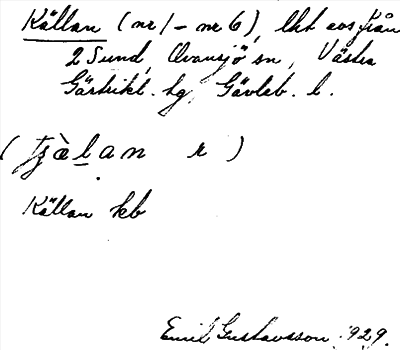 Källan (nr 1 – nr 6), lht avs från
2 Sund, Ovansjö sn, Västra
Gästrikl. hg, Gävleb. l.
(tjälan r)
Källan kb
Emil Gustavsson 1929.